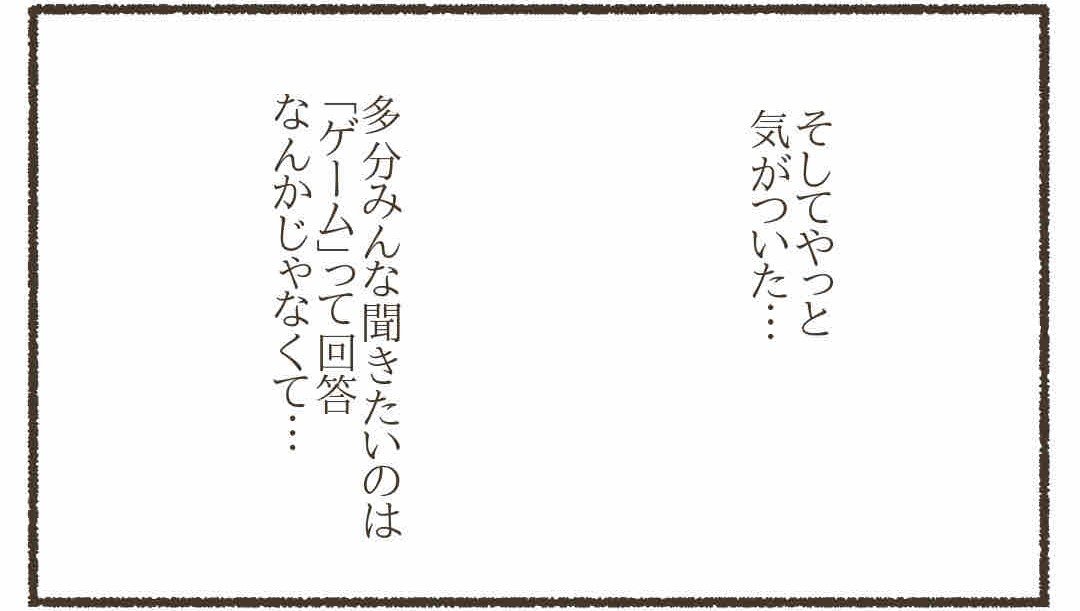 そしてやっと
気がついた…
多分みんな聞きたいのは
「ゲーム」って回答
なんかじゃなくて…